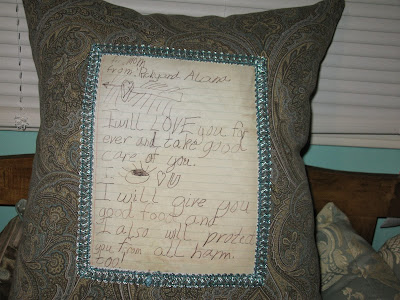 From:
and Alana
I will LOVE you for
ever and take good
care of you.
I will give you
good food and
I also will protect
you from all harm.
too!